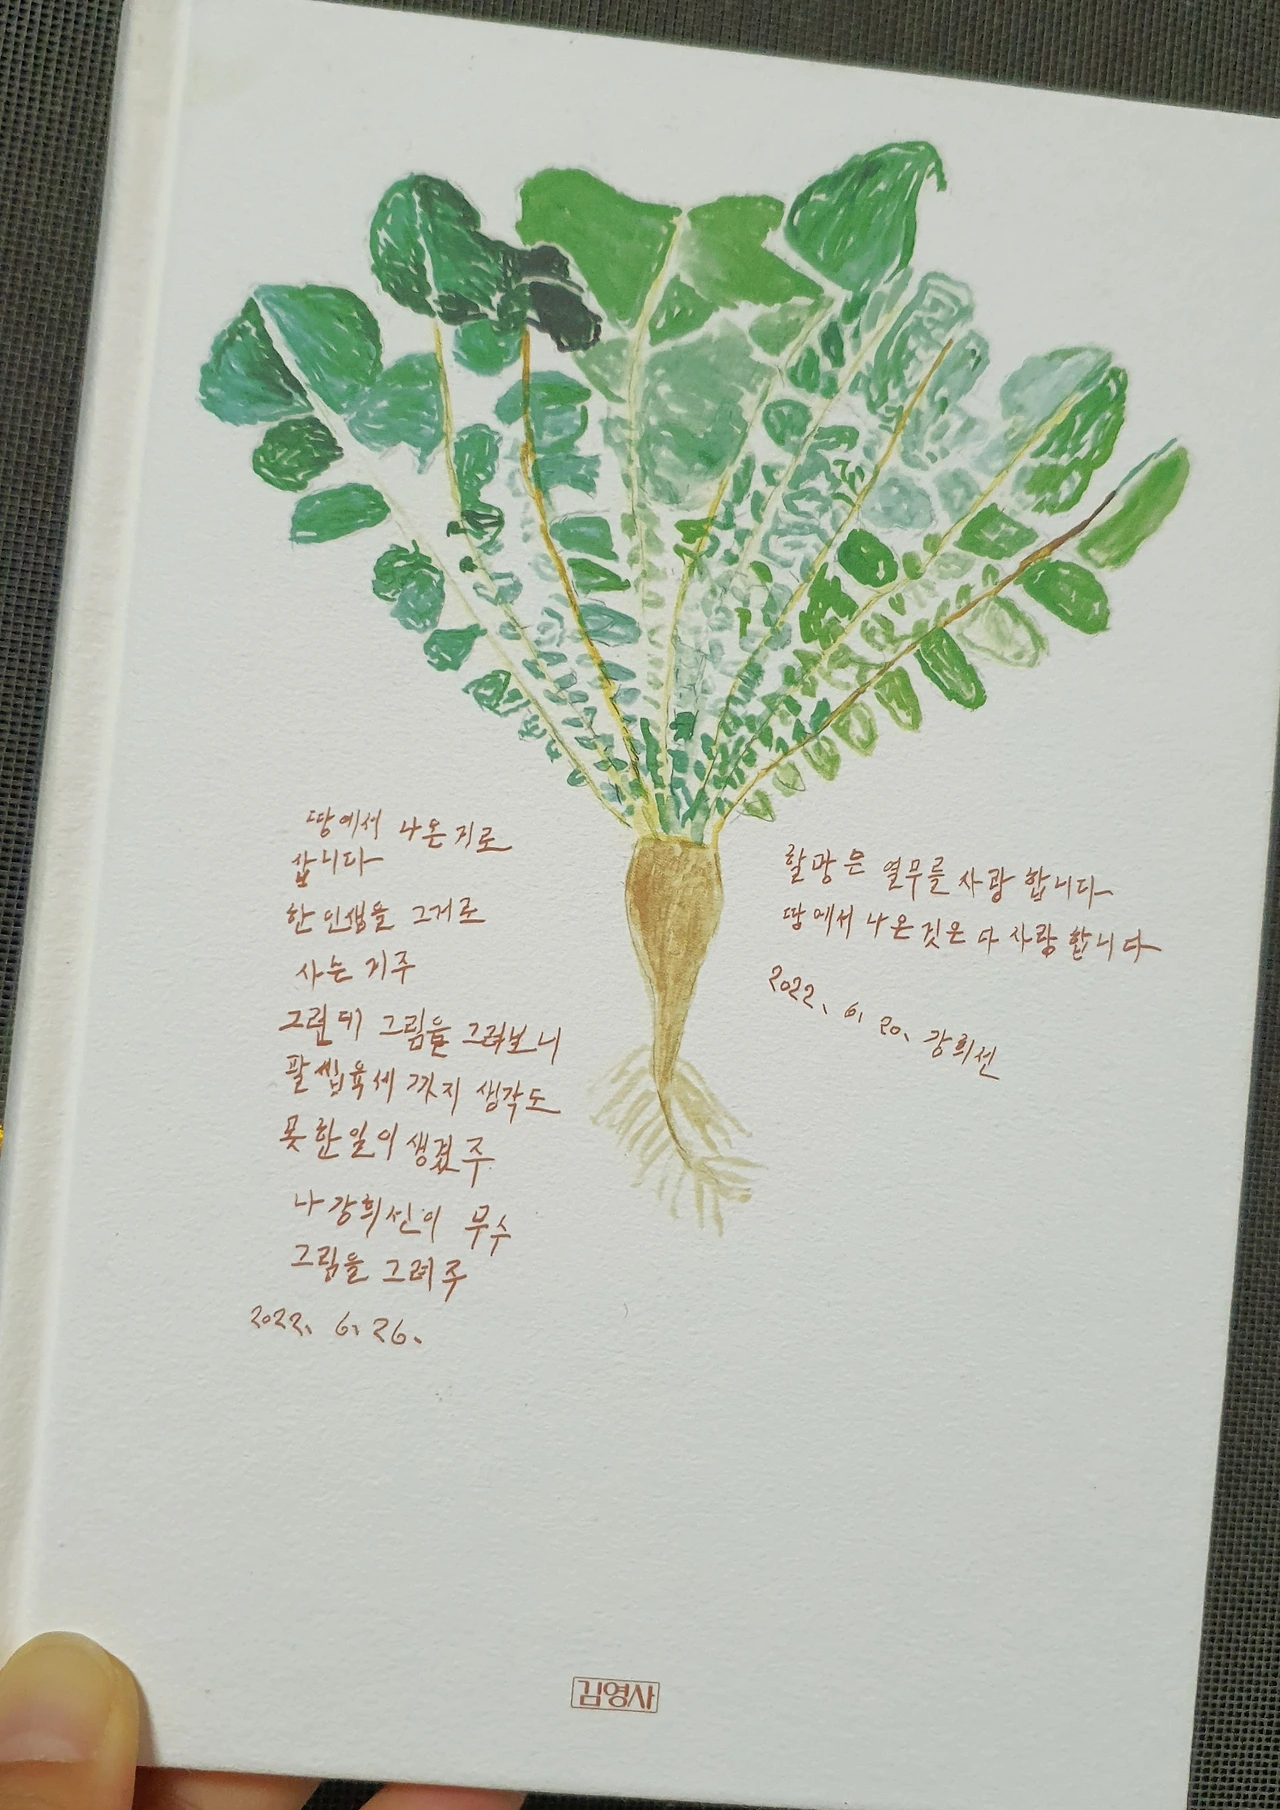 땅에서 나온 기로
삽니다
한 인생을 그거로
사는 거주
그런데 그림을 그려보니
팔씹육세 까지 생각도
못한 일이 생겼주
나 강희선이 무수
그림을 그려주
2022. 6. 26.
할망은 열무를 사랑합니다
땅에서 나온 것은 다 사랑합니다
2022. 6. 20. 강희선
김영사